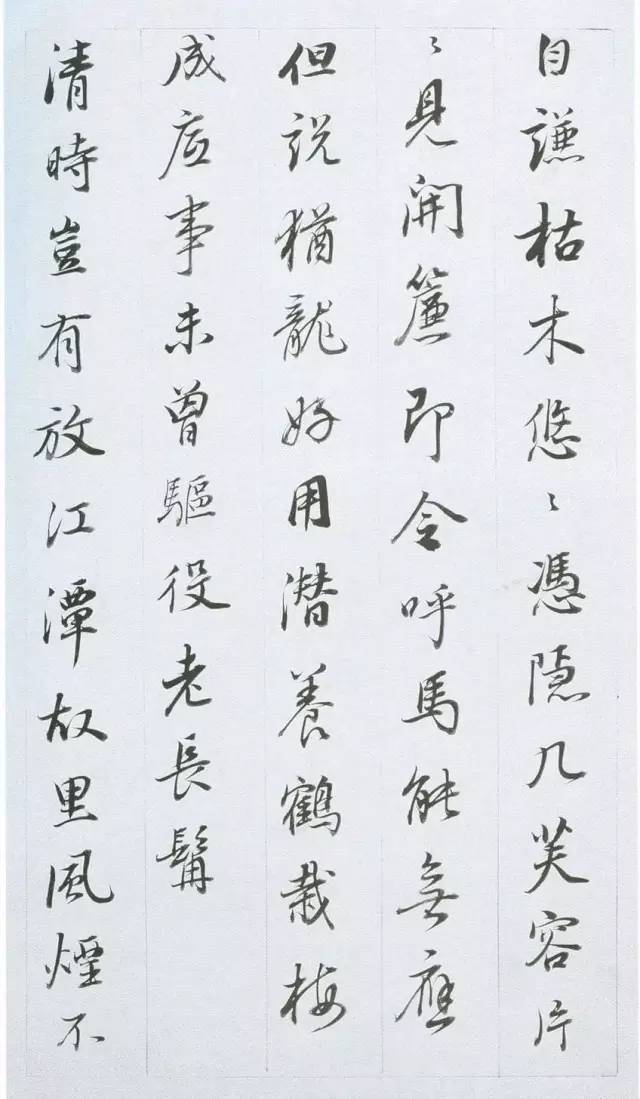 自謙枯木悠〻憑隱几芙容片
〻見開簾即令呼馬能無應
但説猶龍好用潜養鶴栽梅
成底事未曾驅役老長髯
清時豈有放江潭故里風煙不